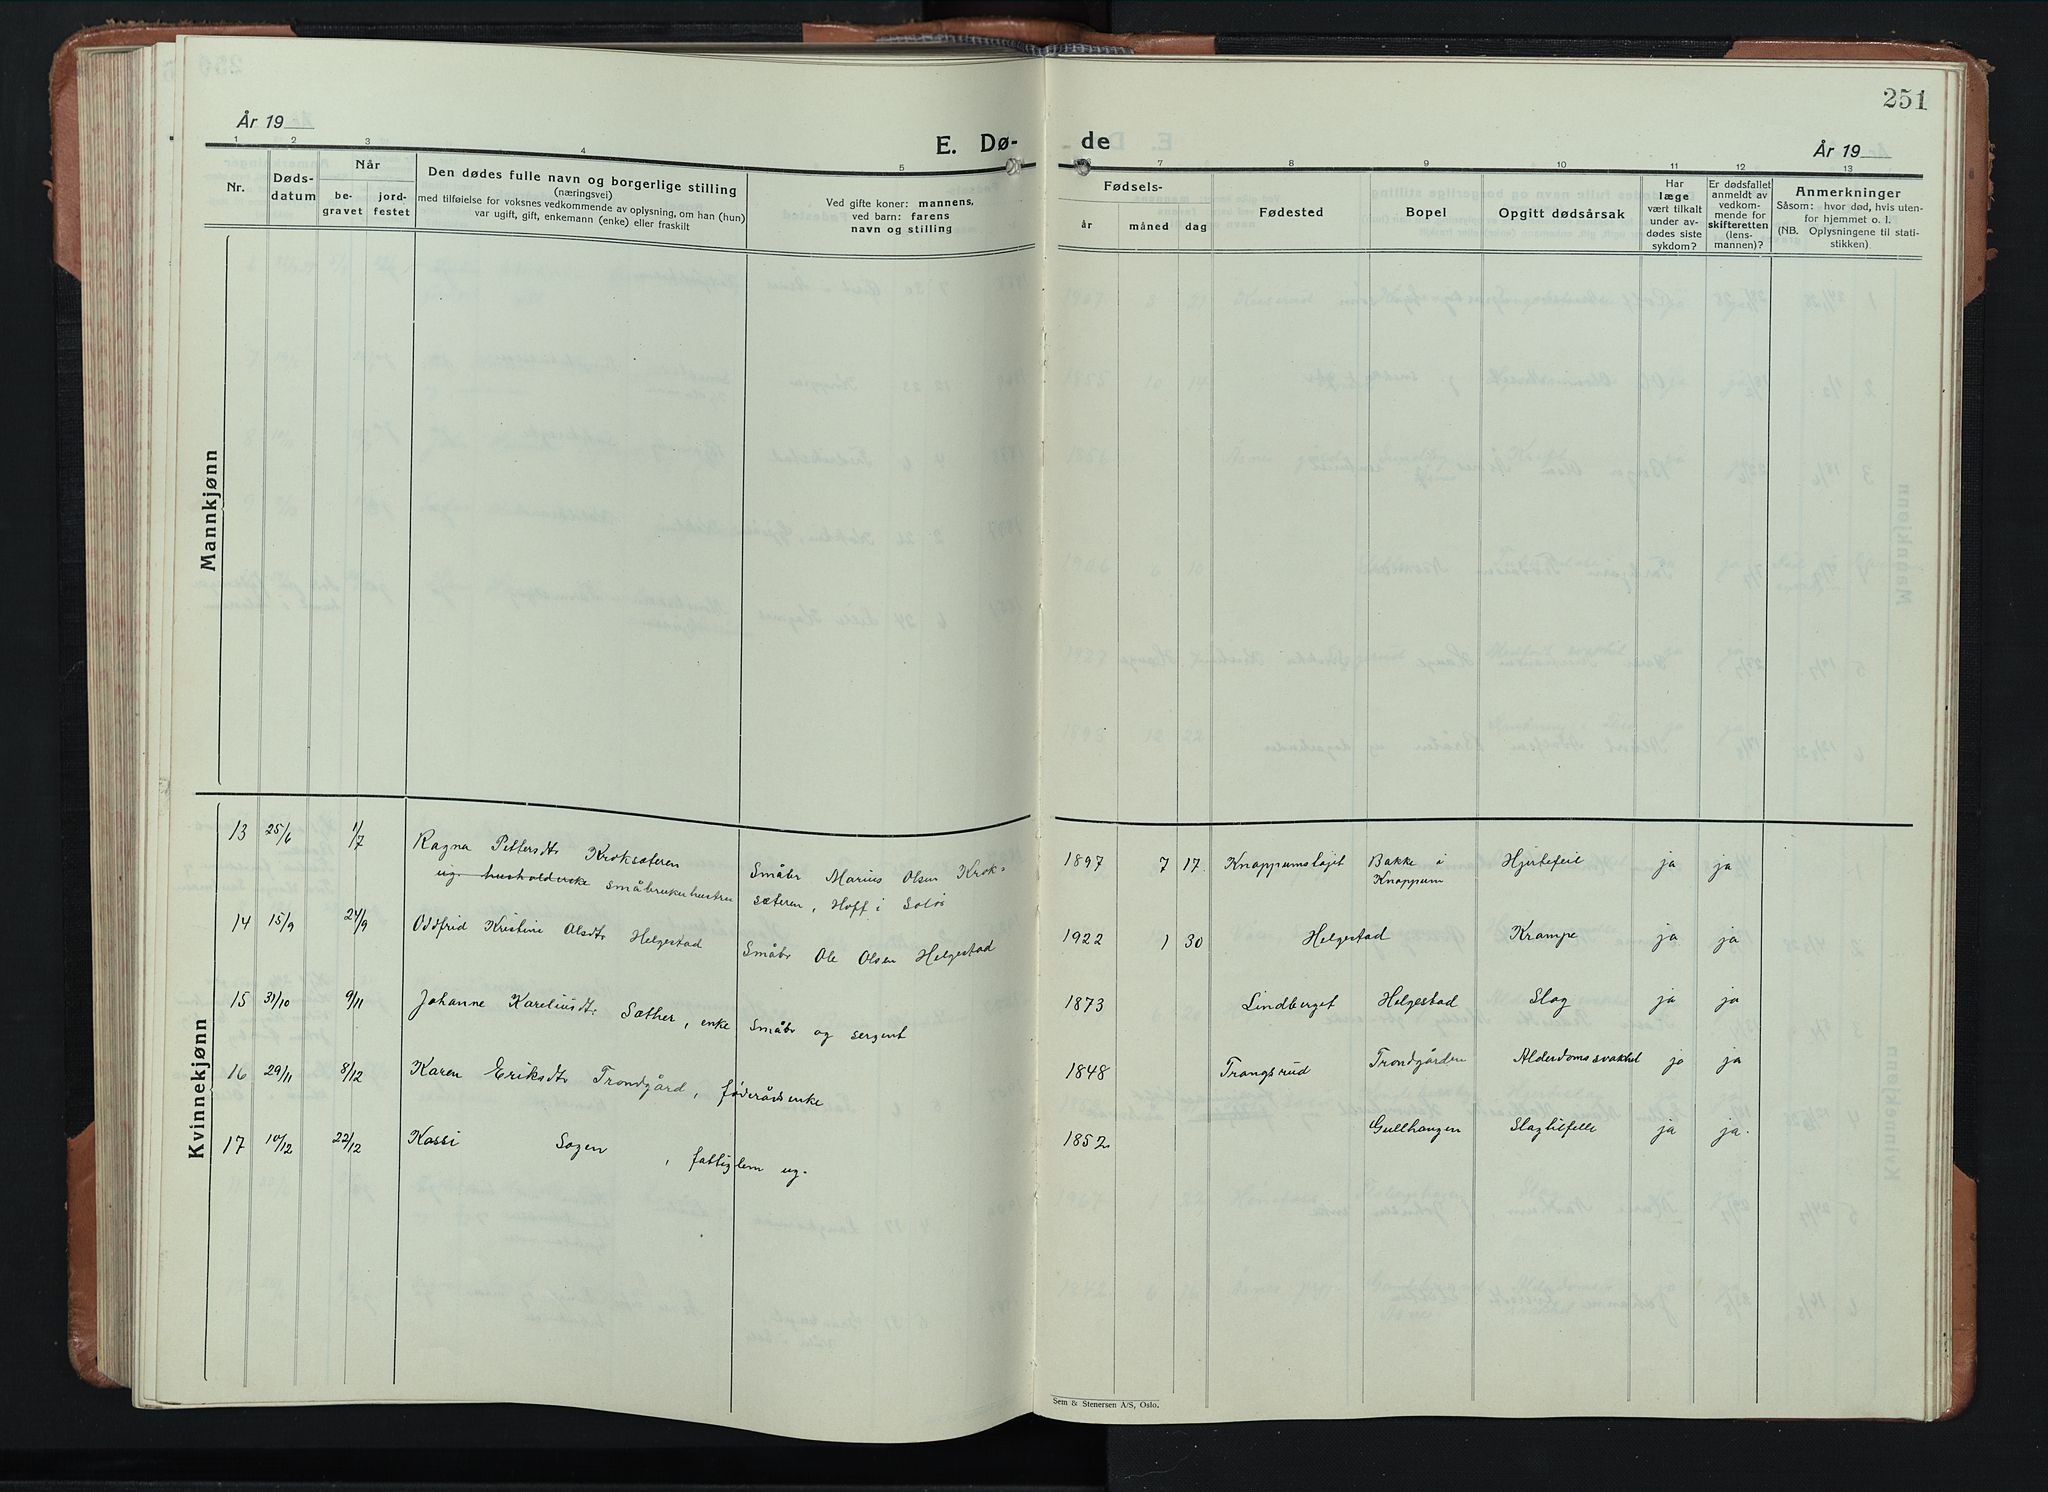 251
År 19
E. Dø-
de
År 19
1 2 3 4 5 6 7 8 9 10 11 12 13
Nr.
Døds-
datum
Når
be-
gravet
jord-
festet
Den dødes fulle navn og borgerlige stilling
(næringsvei)
med tilføielse for voksnes vedkommende av oplysning, om han (hun)
var ugift, gift, enkemann (enke) eller fraskilt
Ved gifte koner: mannens,
ved barn: farens
navn og stilling
Fødsels-
år måned dag
Fødested
Bopel
Opgitt dødsårsak
Har
læge
vært tilkalt
under av-
dødes siste
sykdom?
Er dødsfallet
anmeldt av
vedkom-
mende for
skifteretten
(lens-
mannen)?
Anmerkninger
Såsom: hvor død, hvis uten-
for hjemmet o. l.
(NB. Oplysningene til stati-
stikken.)
Mannkjønn
Kvinnekjønn
13 25/6 1/7 Ragna Pettersdtr Kroksæteren
ug. husholderske småbrukerhustru
Småbr Marius Olsen Krok-
sæteren, Hoff i Solør
1897 7 17. Knappumsløjet Bakke i
Knappum
Hjertefeil ja ja
14 15/9 24/9 Oddfrid Kristine Olsdtr Helgestad Småbr Ole Olsen Helgestad 1922 1 30 Helgestad Krampe ja ja
15 31/10 9/11 Johanne Kareliusdtr Sæther, enke Småbr og sergent 1873 Lindberget Helgestad Slag ja ja
16 29/11 8/12 Karen Eriksdtr Trondgård, føderådsenke 1848 Trangsrud Trondgården Alderdomssvakhet ja ja
17 10/12 22/12 Kassi Sagen, fattiglem ug. 1852 Gullhaugen Slagtilfelle ja ja.
Sem & Stenersen A/S, Oslo.